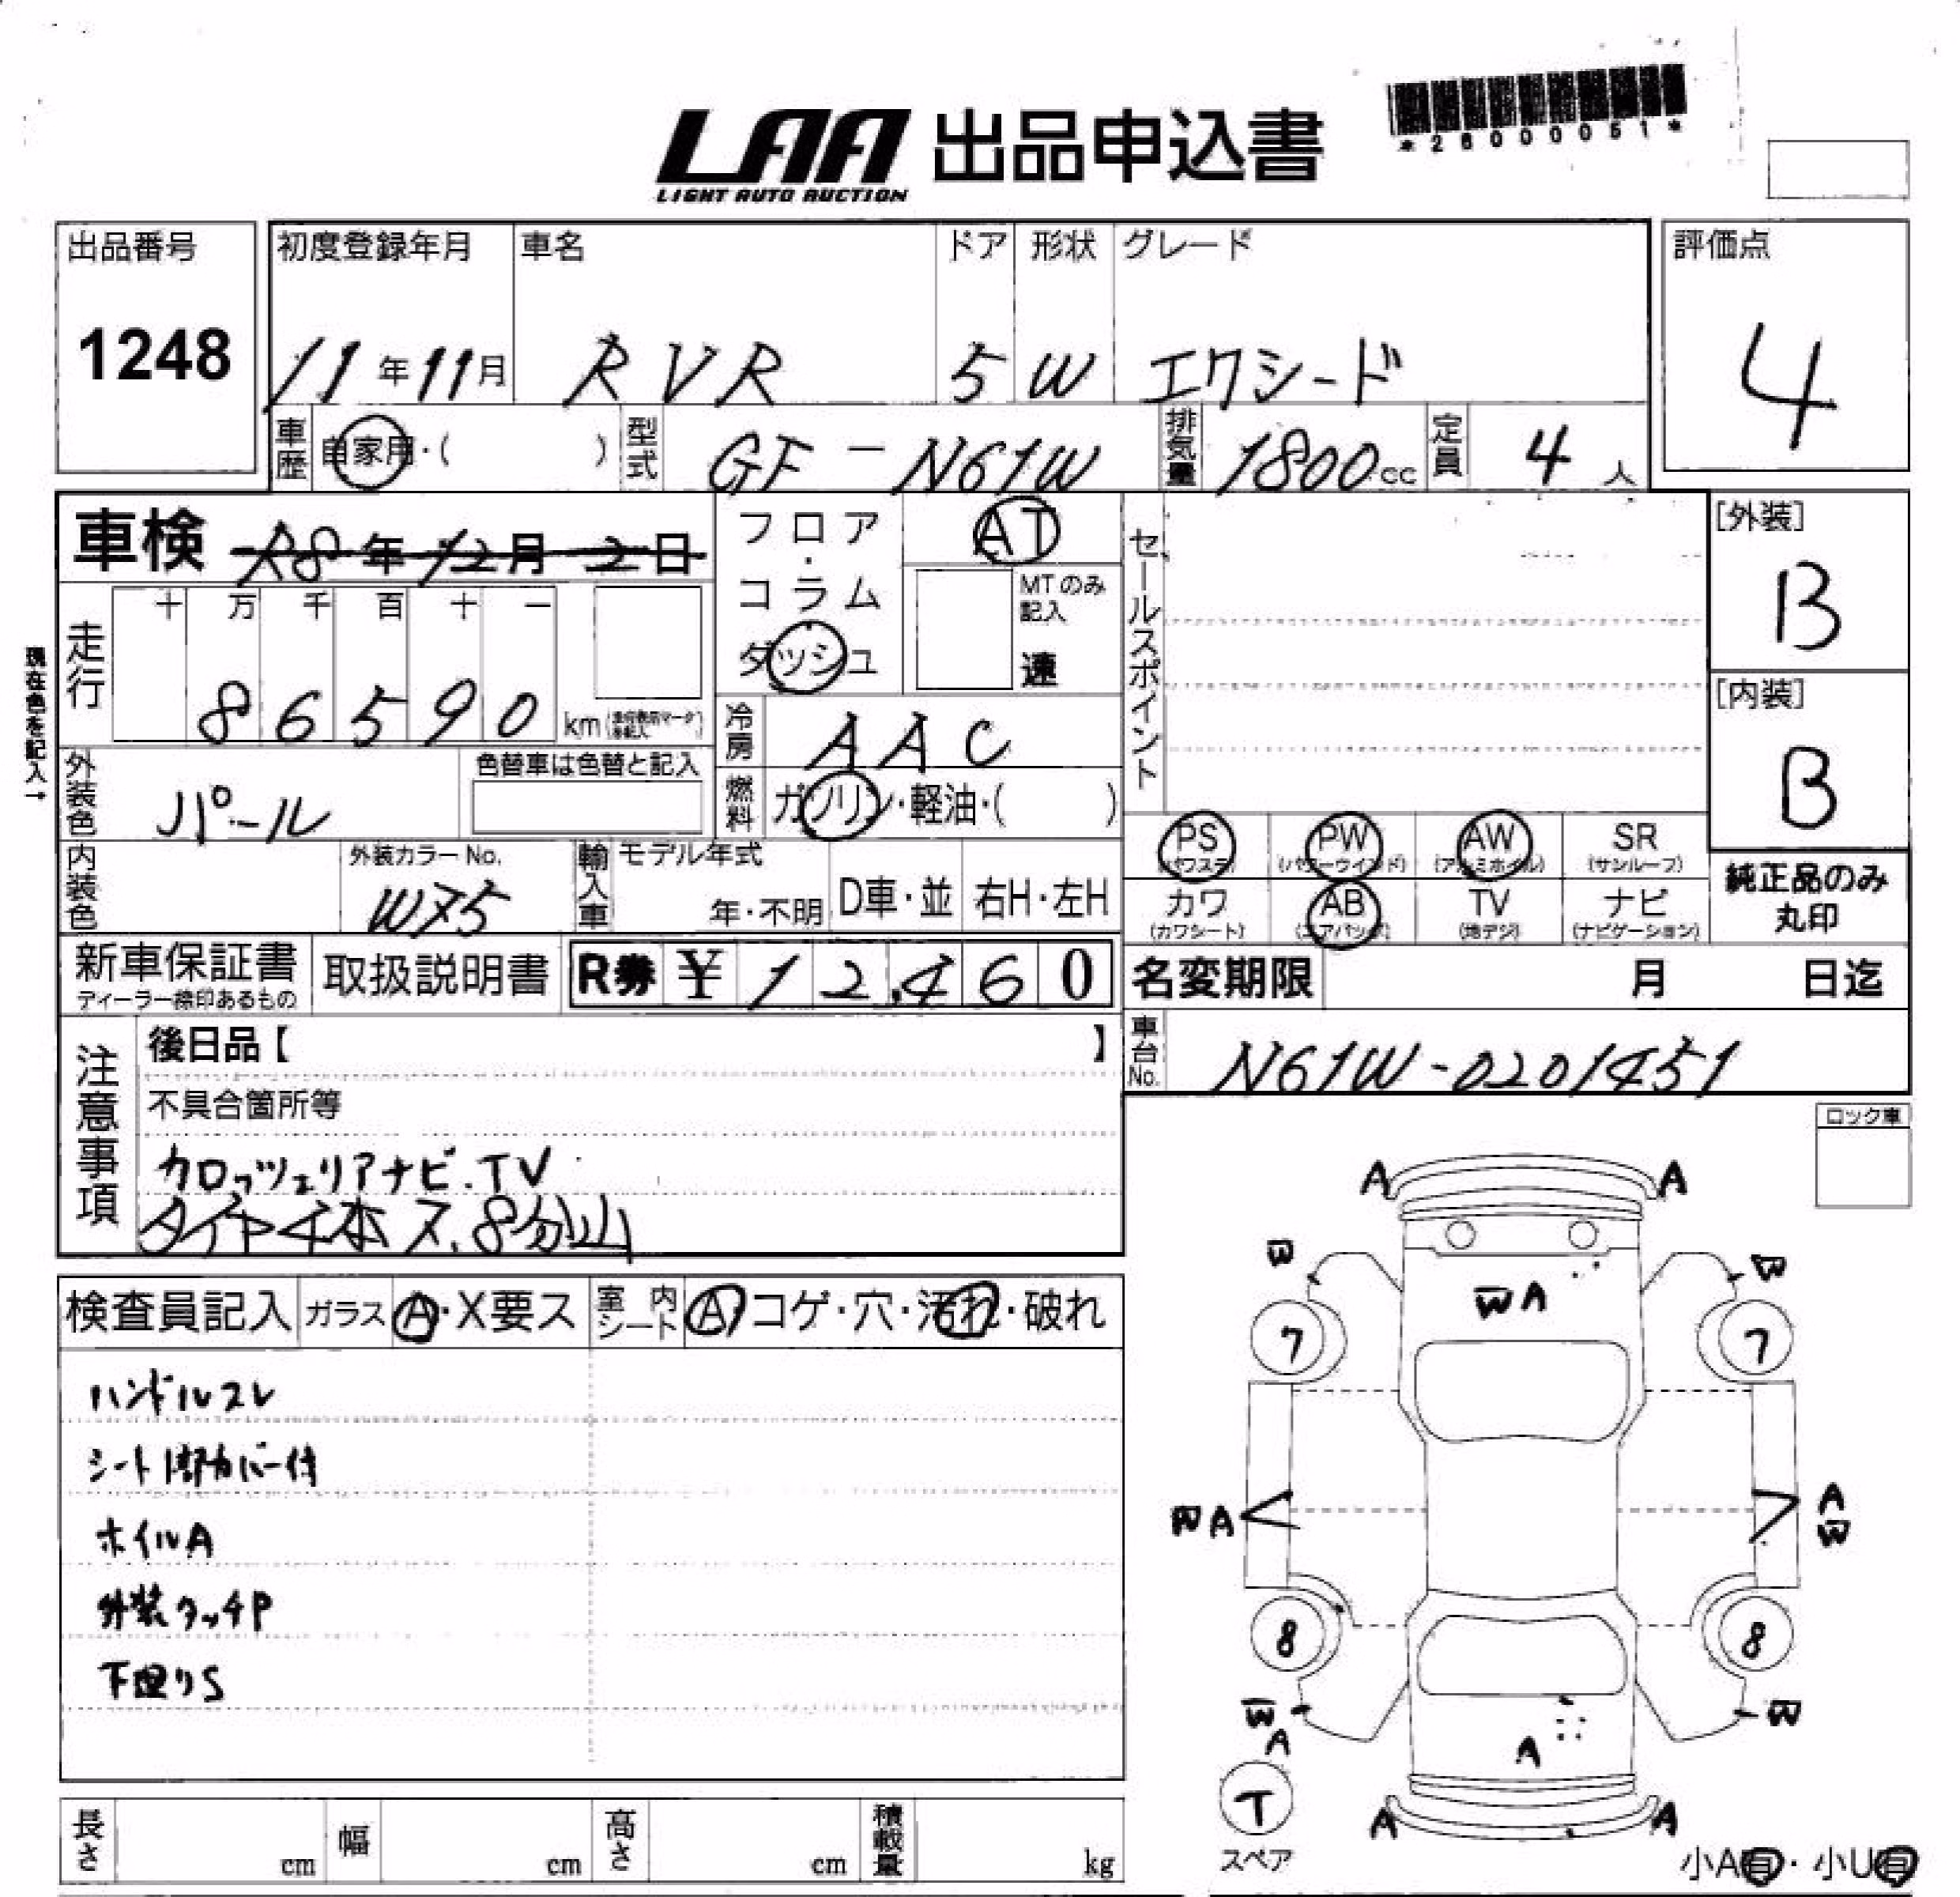 LAA 出品申込書
LIGHT AUTO AUCTION
*26000051*
出品番号
1248
初度登録年月
11年11月
車名
RVR
ドア
5
形状
W
グレード
エクシード
評価点
4
車歴 自家用・( )
型式 GF-N61W
排気量 1800cc
定員 4人
車検 R8年12月2日
フロア・コラム
ダッシュ
AT
MTのみ記入
速
セールスポイント
[外装]
B
[内装]
B
現在色を記入→
走行
十 万 千 百 十 一
8 6 5 9 0 km
冷房 AAC
燃料 ガソリン・軽油・( )
外装色 パール
色替車は色替と記入
内装色
外装カラーNo.
W75
輸入車 モデル年式
年・不明 D車・並 右H・左H
PS (パワステ)
PW (パワーウインド)
AW (アルミホイル)
SR (サンルーフ)
カワ (カワシート)
AB (エアバッグ)
TV (地デジ)
ナビ (ナビゲーション)
純正品のみ
丸印
新車保証書
ディーラー捺印あるもの
取扱説明書
R券 ¥12,460
名変期限 月 日迄
車台No. N61W-0201451
注意事項
後日品【 】
不具合箇所等
カロッツェリアナビ.TV
タイヤ4本ス.8分山
ロック車
検査員記入 ガラス A・X要ス 室内シート A・コゲ・穴・汚れ・破れ
ハンドルスレ
ホイルA
外装タッチP
下廻りS
A A
W W
WA
7 7
WA
A
W
8 8
W W
A
A
T
スペア
A A
小A有・小U有
長さ cm 幅 cm 高さ cm 積載量 kg